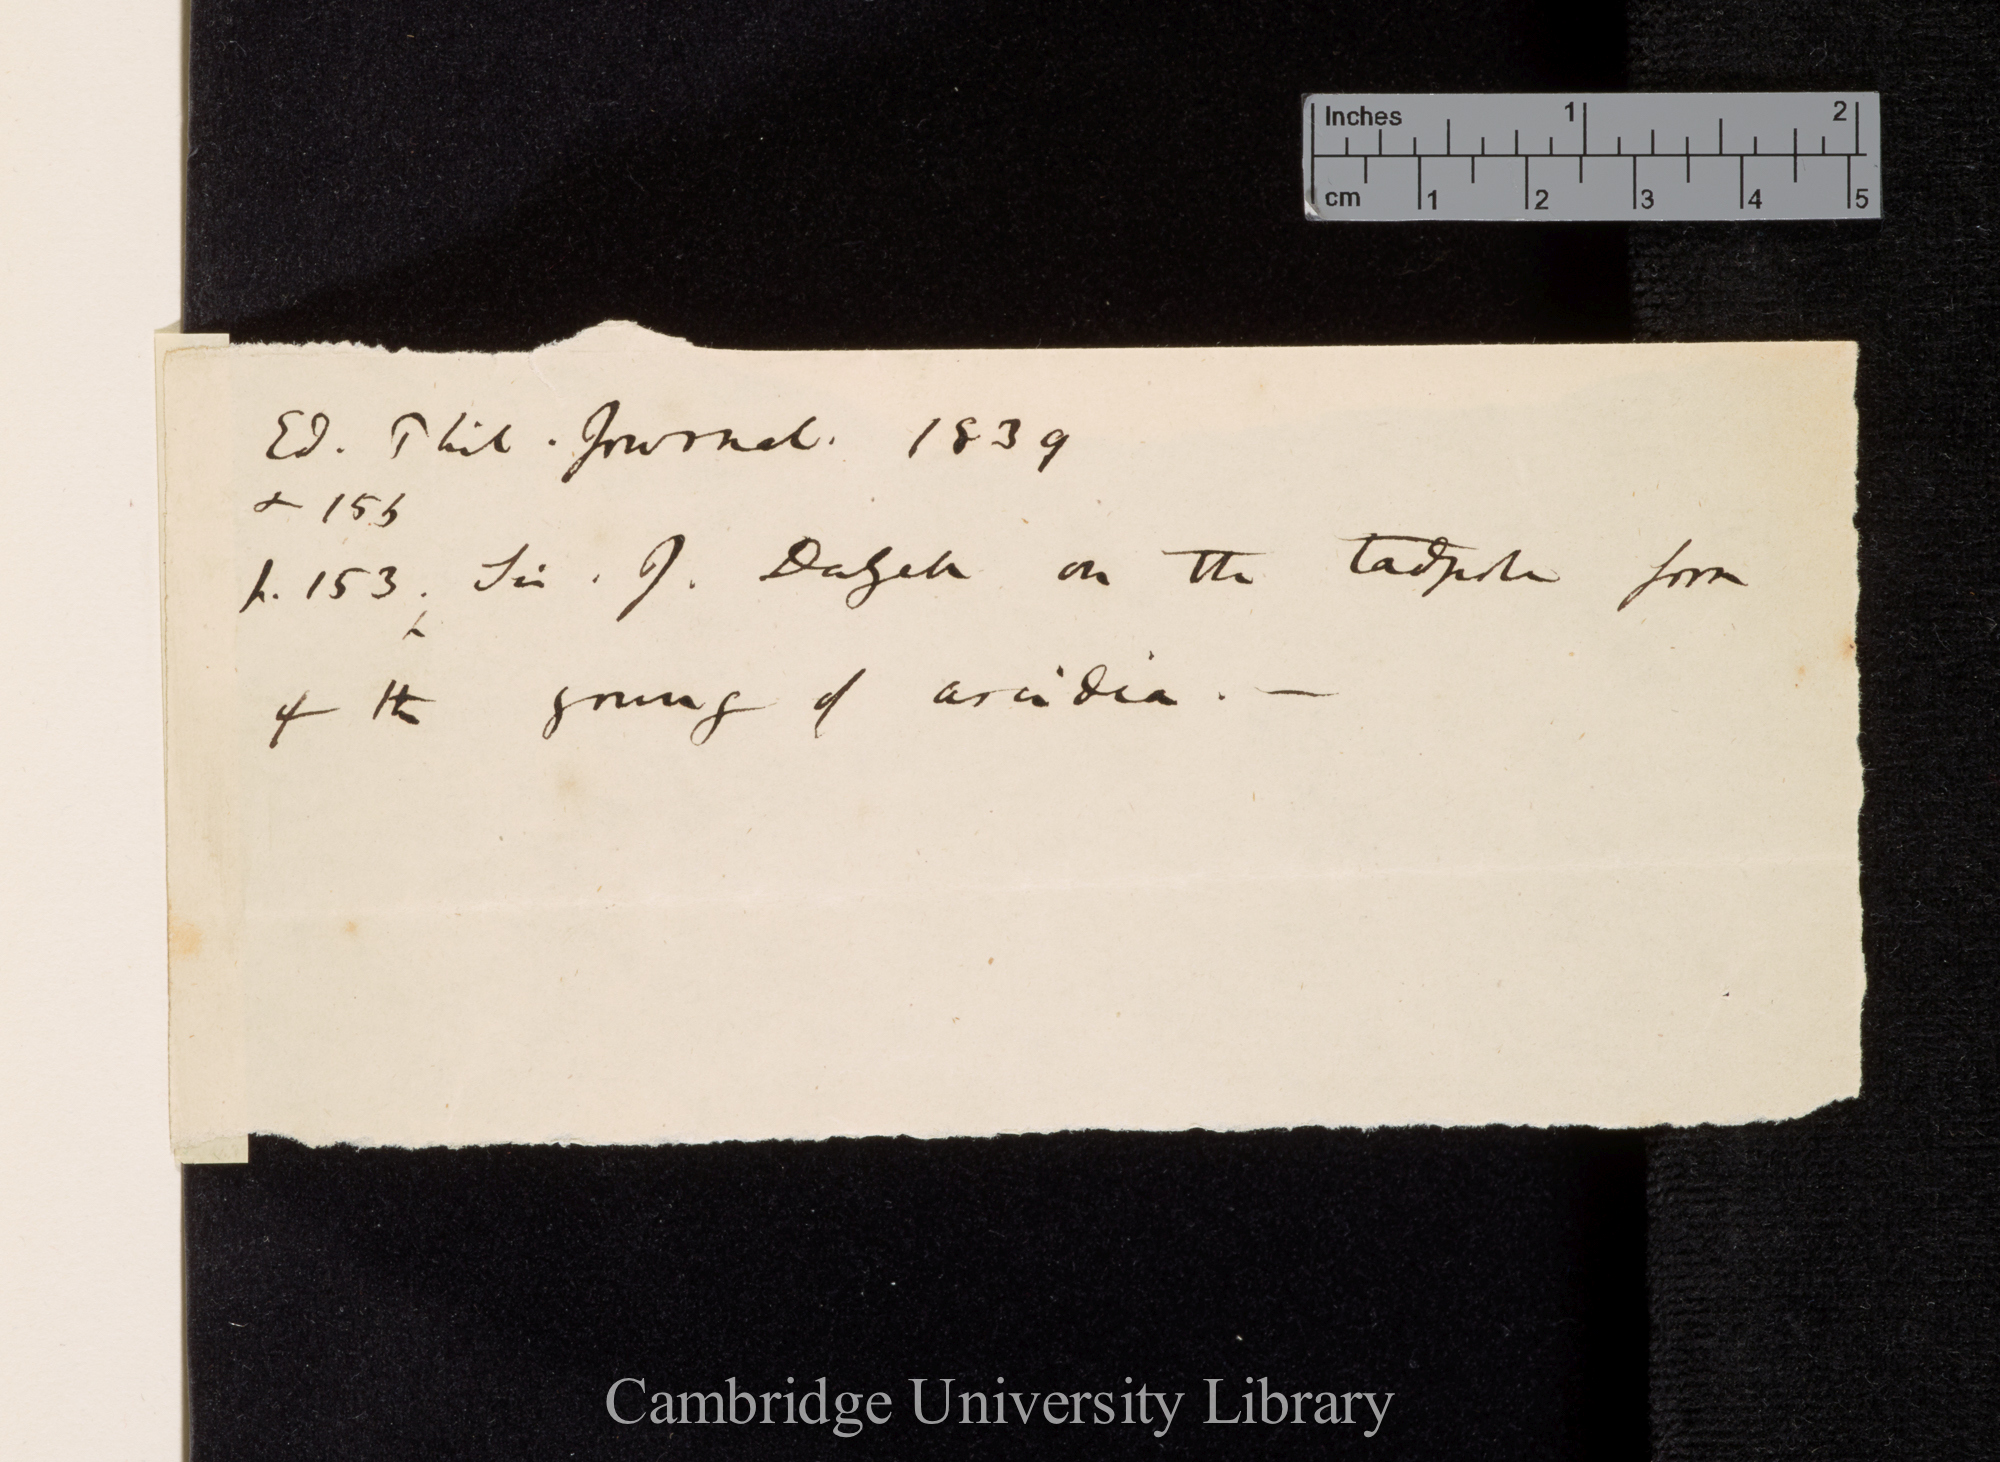 Inches 1 2
cm 1 2 3 4 5
Ed. Phil. Journal. 1839
& 156
p. 153. Sir. J. Dalyell on the tadpole form
of the young of ascidia. —
Cambridge University Library